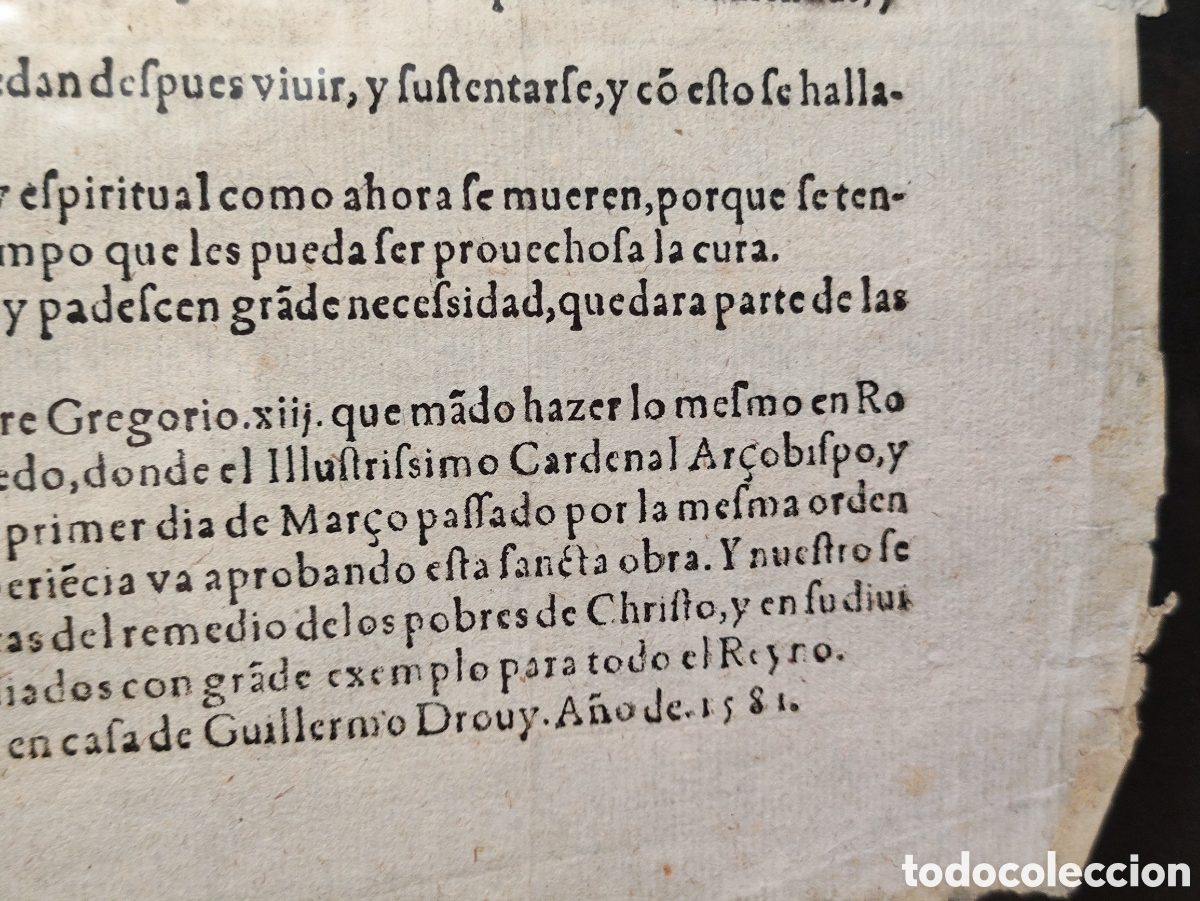 edan deſpues viuir, y ſuſtentarſe, y cō eſto ſe halla-
y eſpiritual como ahora ſe mueren, porque ſe ten-
mpo que les pueda ſer prouechoſa la cura.
y padeſcen grāde neceſsidad, quedara parte de las
re Gregorio.xiij. que mādo hazer lo meſmo en Ro
edo, donde el Illuſtriſsimo Cardenal Arçobiſpo, y
primer dia de Março paſſado por la meſma orden
periēcia va aprobando eſta ſancta obra. Y nueſtro ſe
ras del remedio de los pobres de Chriſto, y en ſu diui
iados con grāde exemplo para todo el Reyno.
en caſa de Guillermo Drouy. Año de. 1581.
todocoleccion